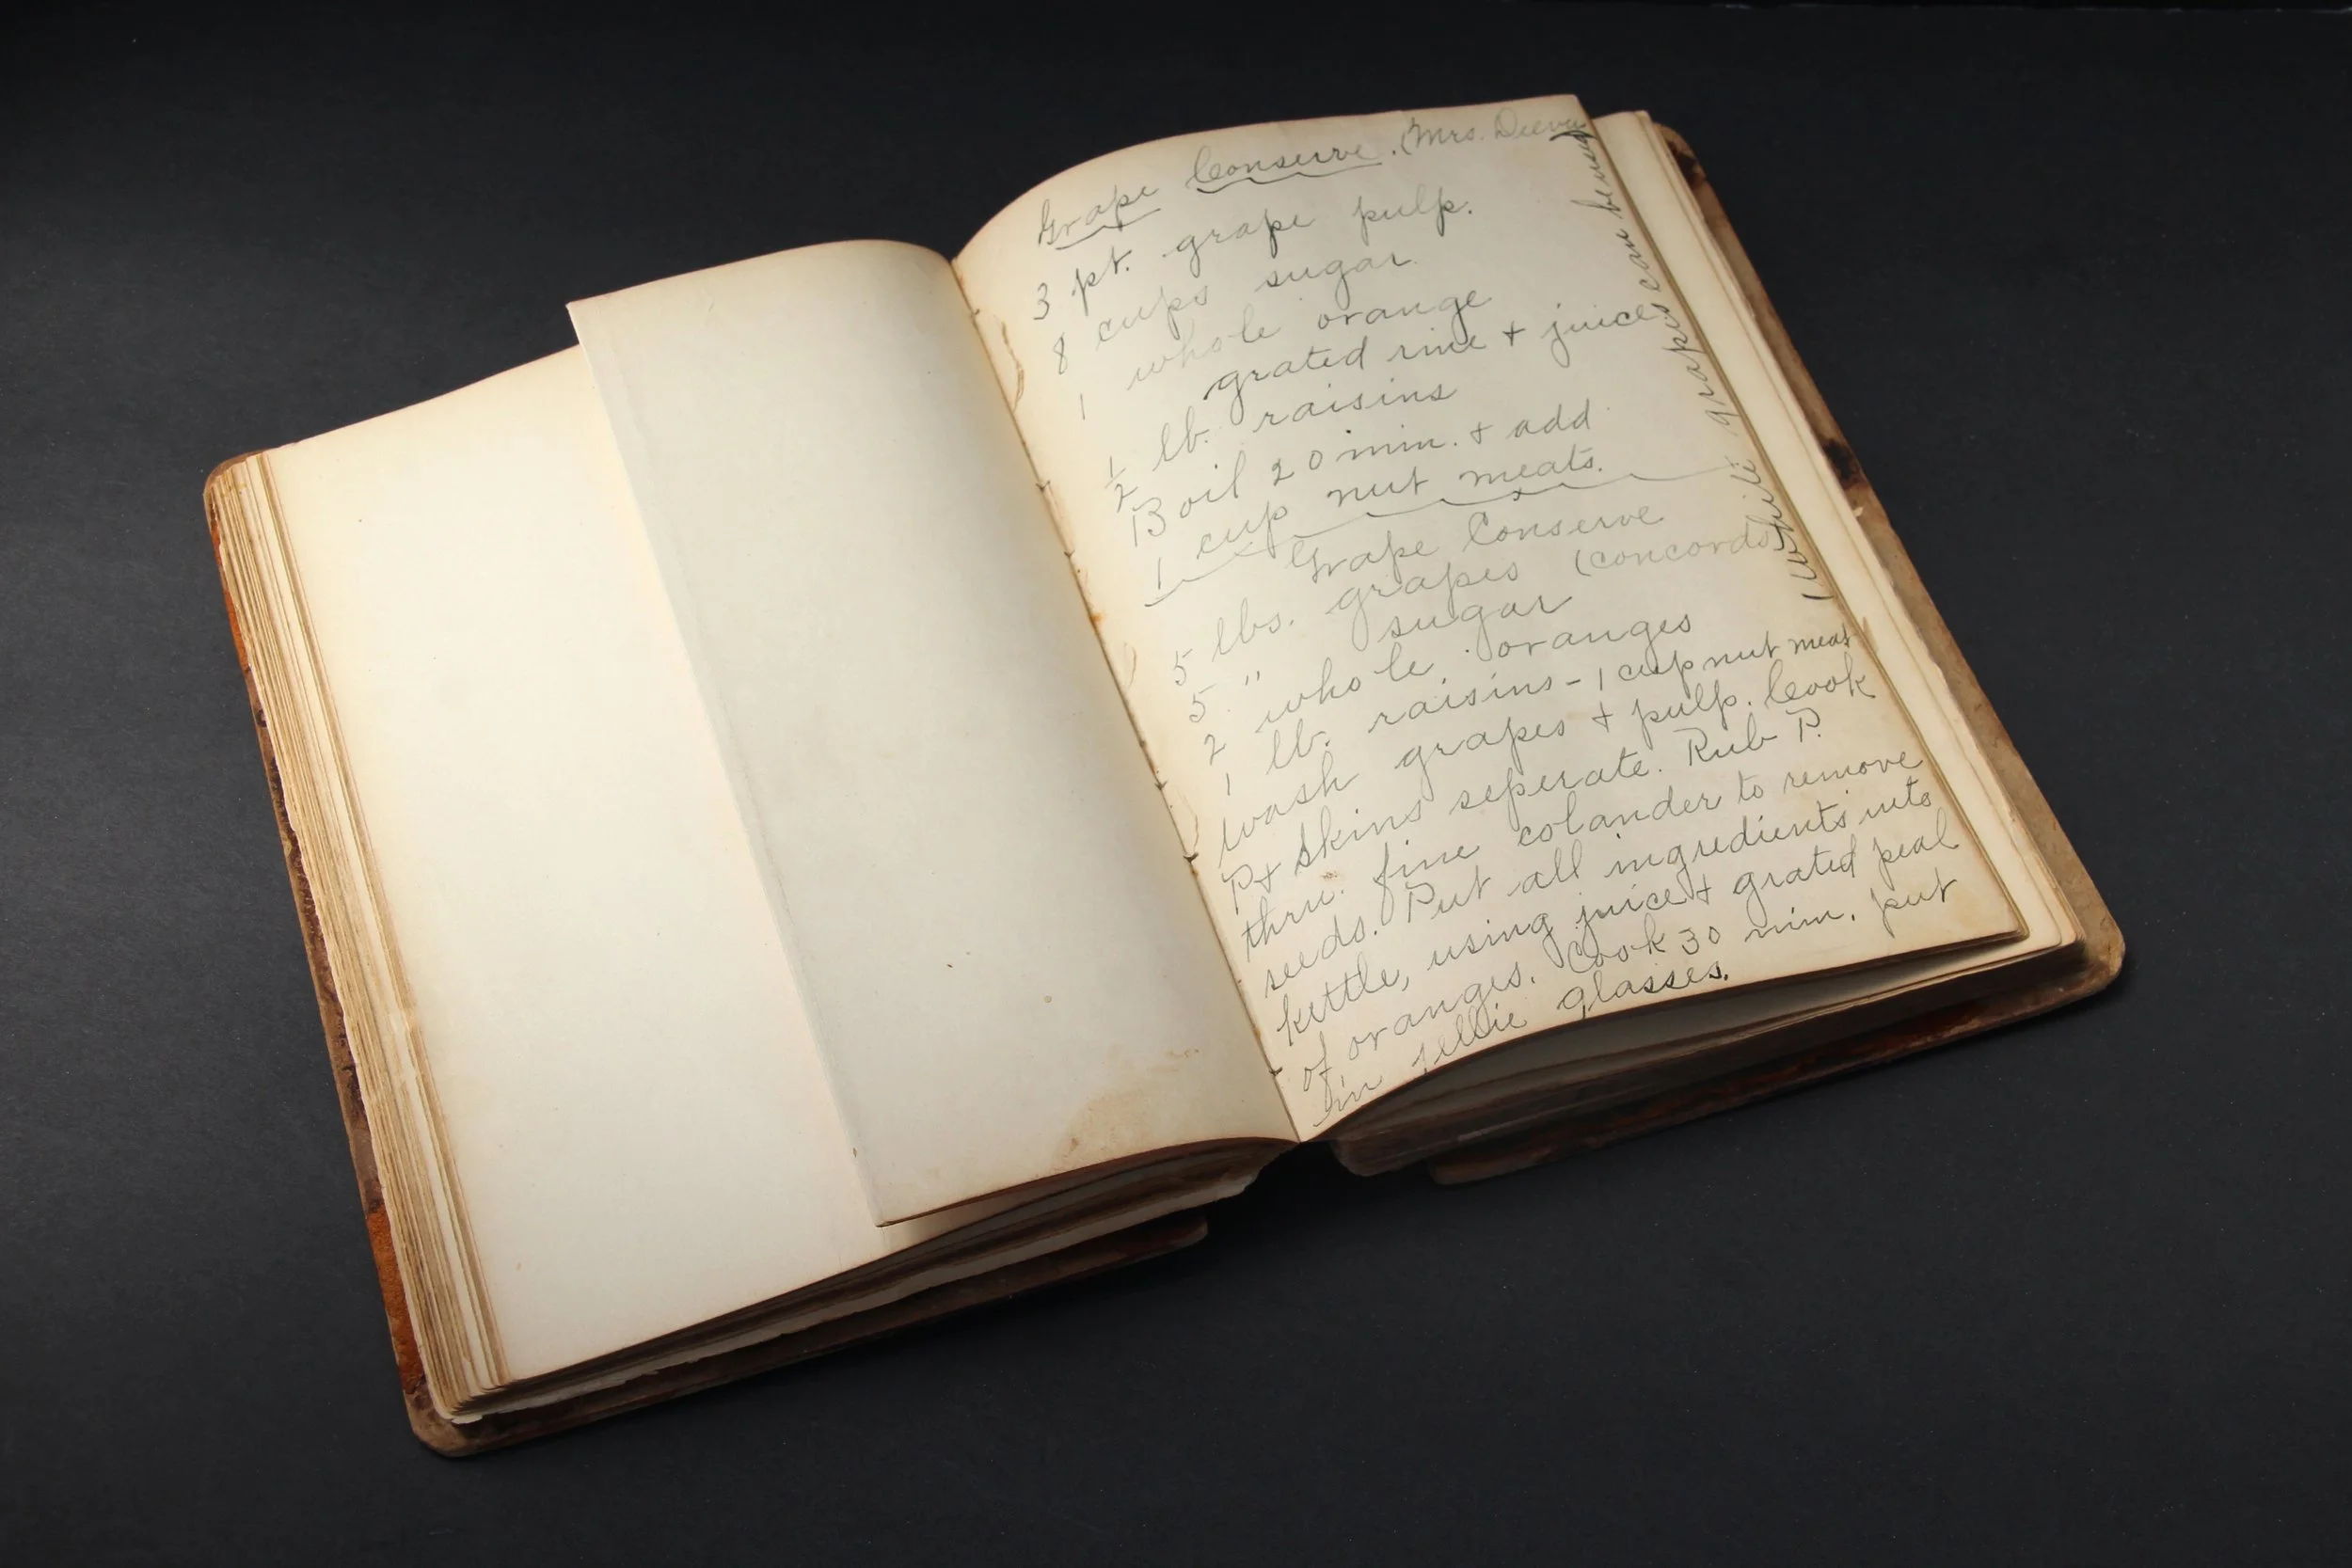 Grape Conserve. (Mrs.
3 pt. grape pulp.
8 cups sugar
1 whole orange
grated rine + juice
1/2 lb. raisins
Boil 20 min. + add
1 cup nut meats.
Grape Conserve
5 lbs. grapes (concords)
5 " sugar
2 whole oranges
1 lb. raisins - 1 cup nut meat
wash grapes + pulp. Cook
P + skins seperate. Rub P.
thru fine colander to remove
seeds. Put all ingredients into
kettle, using juice + grated peal
of oranges. Cook 30 min. put
in jellie glasses.
(White grapes can be used)